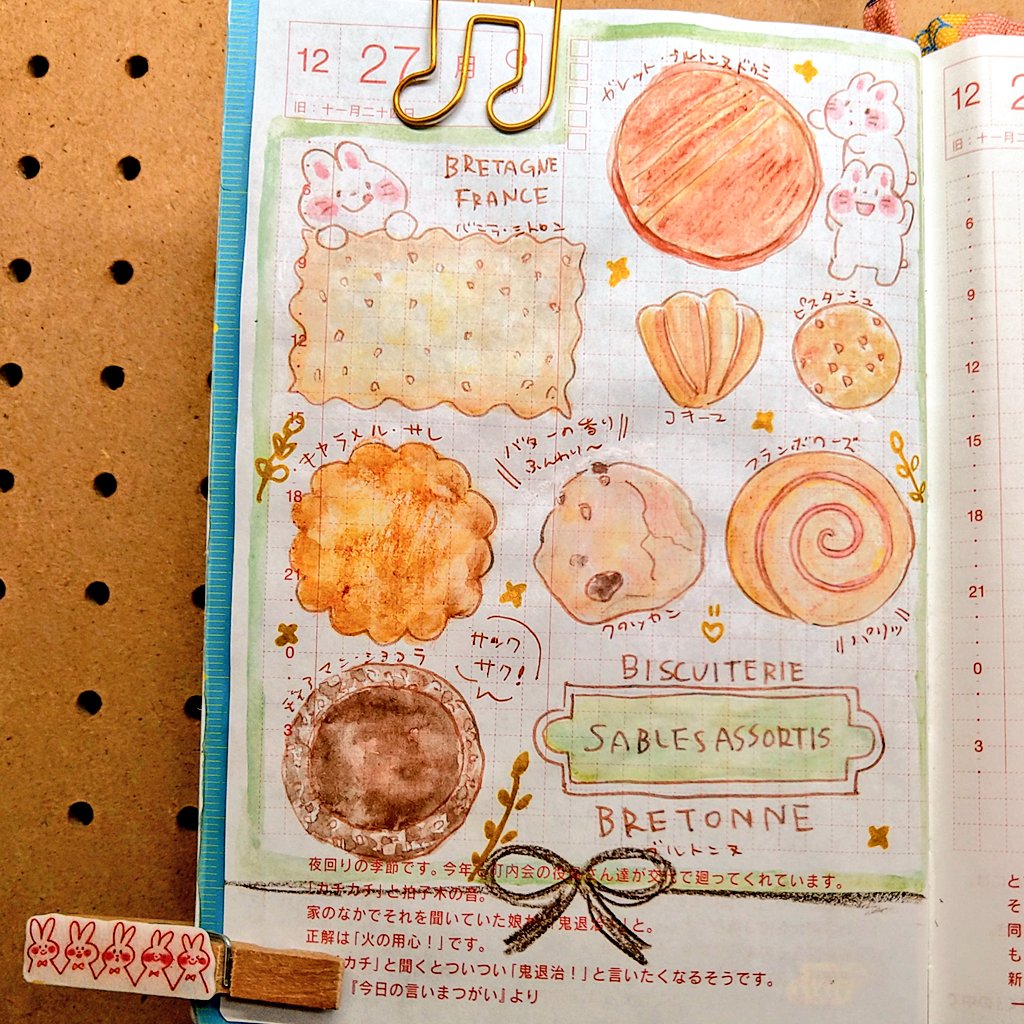 12 27 月
旧:十一月二十四日
BRETAGNE
FRANCE
バニラ・シトロン
ガレット・ブルトンヌドゥミ
ピスターシュ
コキーユ
キャラメル・サレ
バターの香り
ふんわり〜
フランボワーズ
クロッカン
パリッ
サック
サク!
ショコラ
BISCUITERIE
SABLES ASSORTIS
BRETONNE
ブルトンヌ
6
9
12
15
18
21
0
3
夜回りの季節です。今年 町内会の役 さん達が交 で廻ってくれています。
「カチカチ」と拍子木の音。
家のなかでそれを聞いていた娘が「鬼退治 」と。
正解は「火の用心!」です。
カチ」と聞くとついつい「鬼退治!」と言いたくなるそうです。
『今日の言いまつがい』より
12
旧:十一月二
6
9
12
15
18
21
0
3
と
そ
同
も
新
一